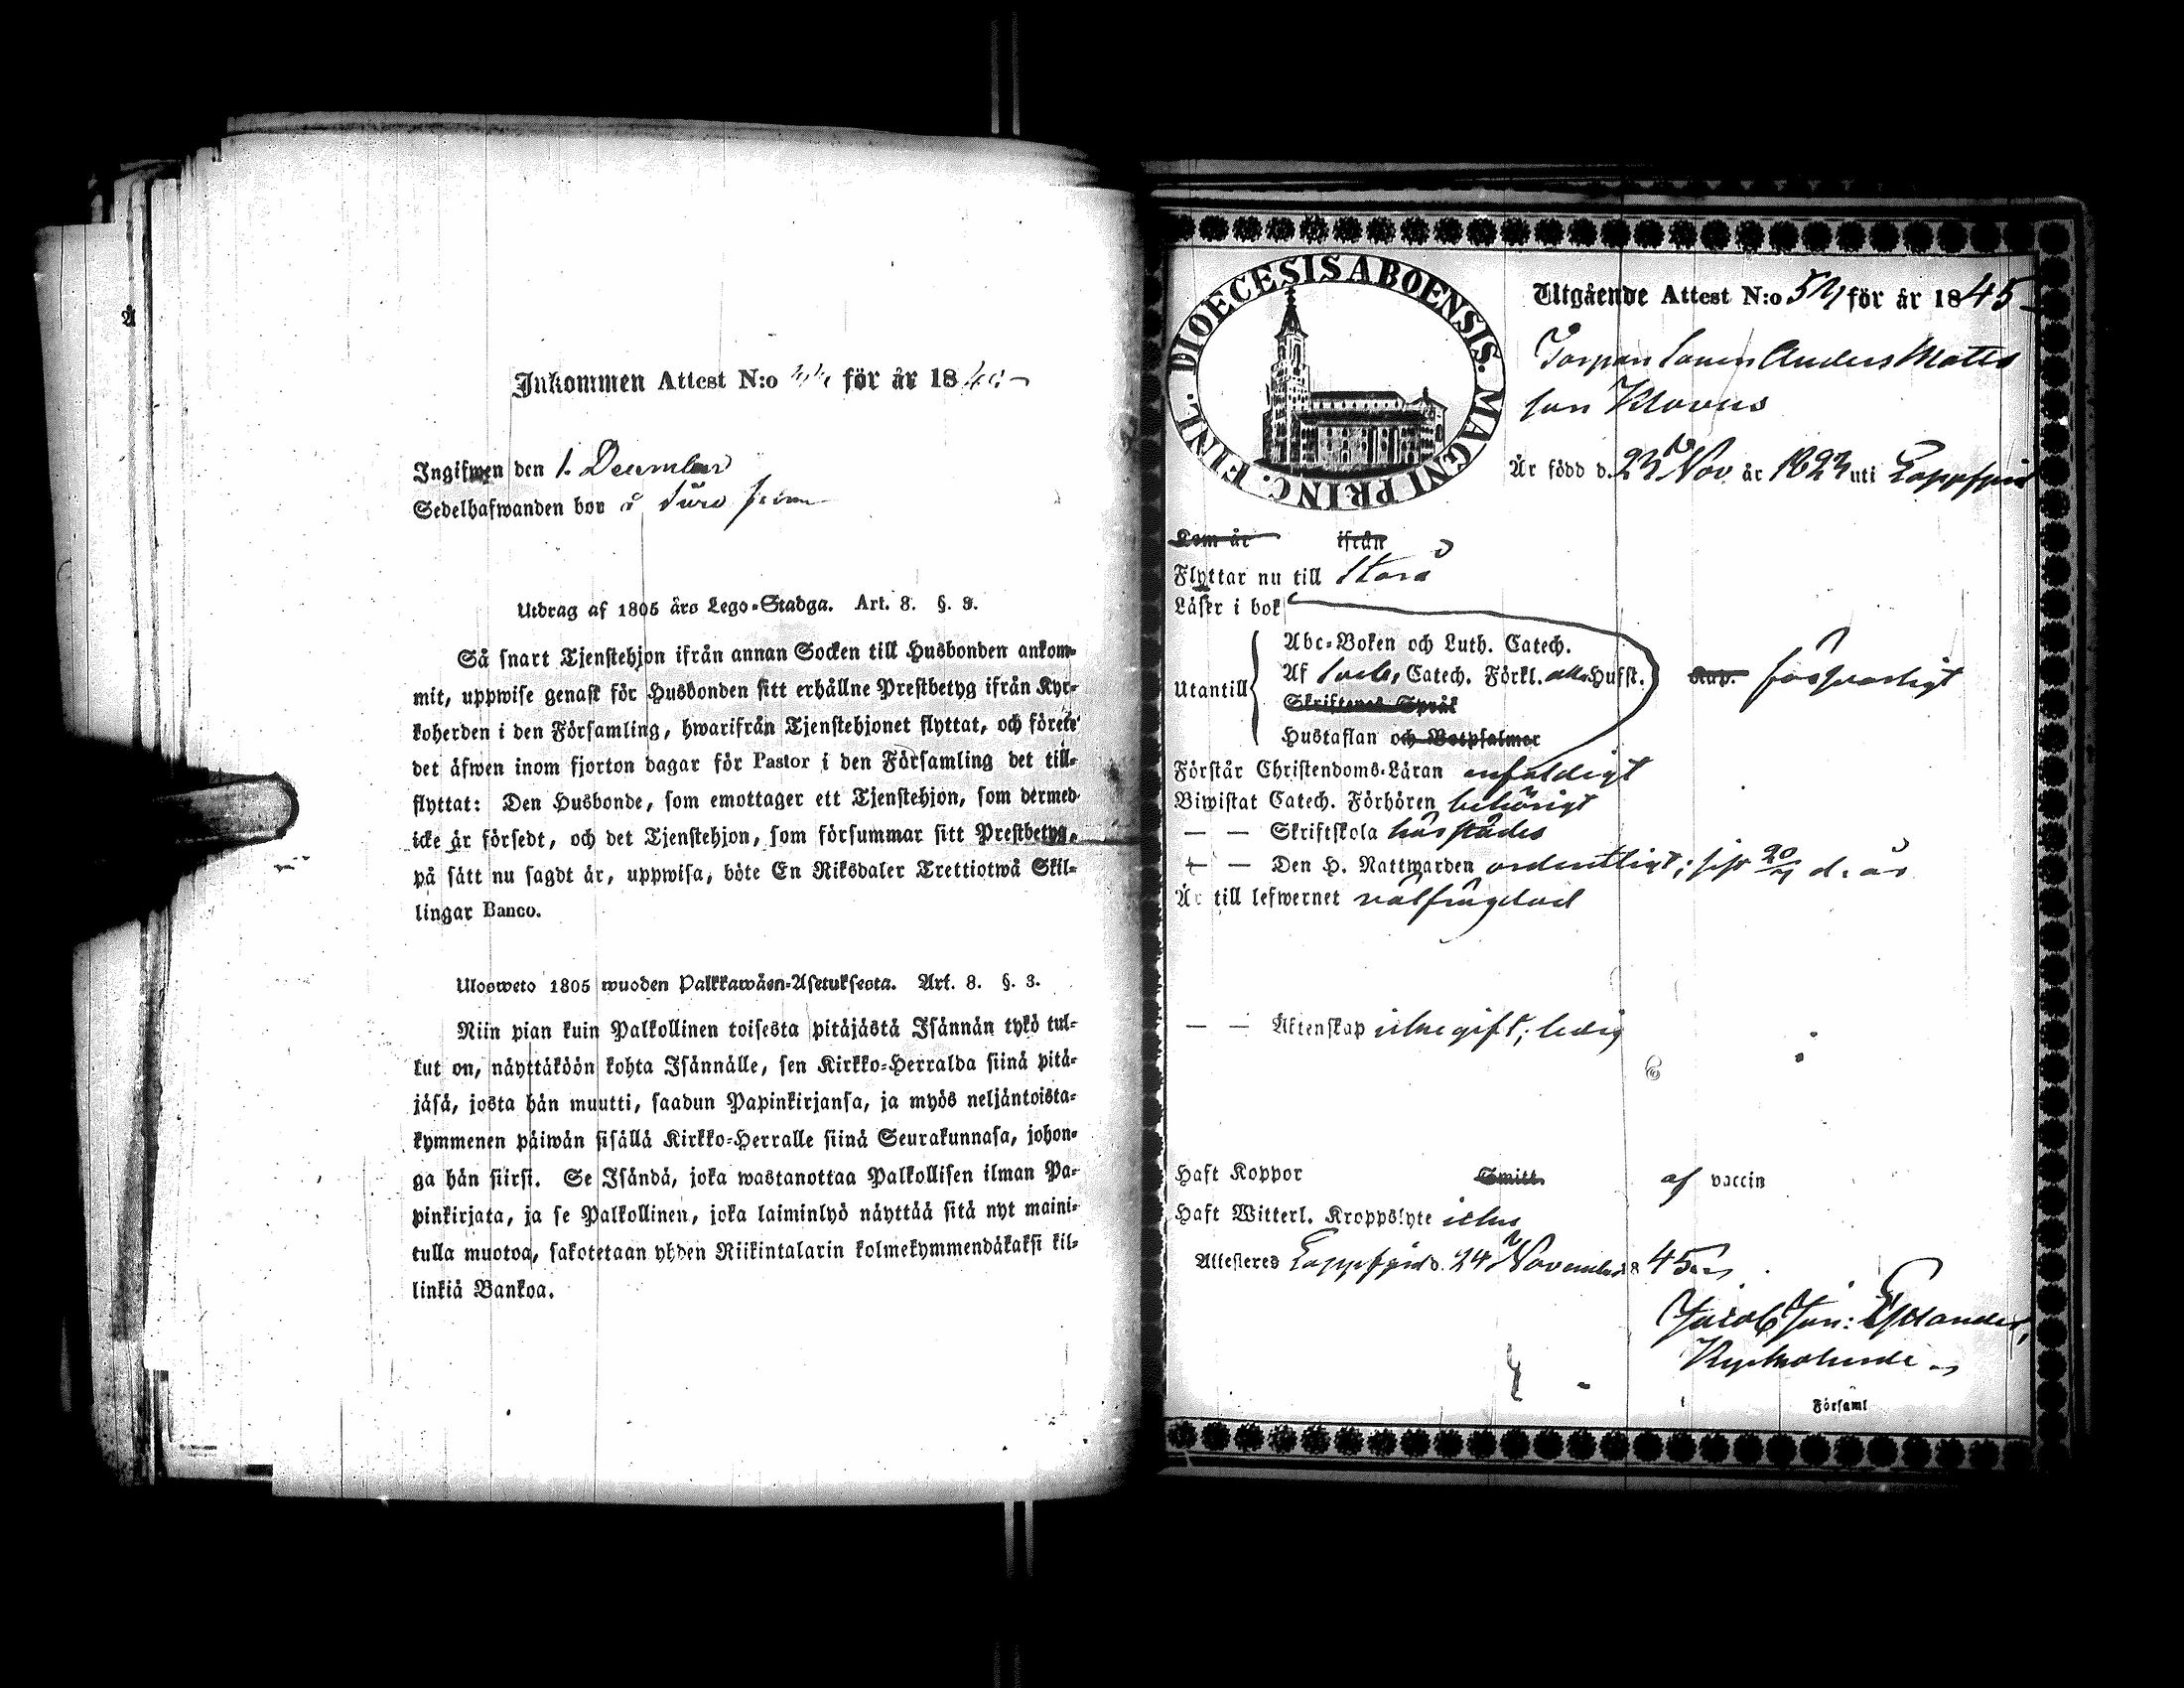 Å
Inkommen Attest N:o för år 18
Ingifwen den 1. December
Sedelhafwanden bor å
Utdrag af 1805 års Lego-Stadga. Art. 8. §. 3.
Så snart Tjenstehjon ifrån annan Socken till Husbonden ankom-
mit, uppwise genast för Husbonden sitt erhållne Prestbetyg ifrån Kyr-
koherden i den Församling, hwarifrån Tjenstehjonet flyttat, och förete
det äfwen inom fjorton dagar för Pastor i den Församling det till-
flyttat: Den Husbonde, som emottager ett Tjenstehjon, som dermed
icke är försedt, och det Tjenstehjon, som försummar sitt Prestbetyg,
på sätt nu sagdt är, uppwisa, böte En Riksdaler Trettiotwå Skil-
lingar Banco.
Ulosweto 1805 wuoden Palkkawäen-Asetuksesta. Art. 8. §. 3.
Niin pian kuin Palkollinen toisesta pitäjästä Isännän tykö tul-
lut on, näyttäköön kohta Isännälle, sen Kirkko-Herralda siinä pitä-
jäsä, josta hän muutti, saadun Papinkirjansa, ja myös neljäntoista-
kymmenen päiwän sisällä Kirkko-Herralle siinä Seurakunnasa, johon-
ga hän siirsi. Se Isändä, joka wastanottaa Palkollisen ilman Pa-
pinkirjata, ja se Palkollinen, joka laiminlyö näyttää sitä nyt maini-
tulla muotoa, sakotetaan yhden Riikintalarin kolmekymmendäkaksi kil-
linkiä Bankoa.
DIOECESIS ABOENSIS. MAGNI PRINC. FINL.
Utgående Attest N:o för år 1845
Torpare sonen Anders Matts
son Klovus
Är född d. 23 Nov. år 1823 uti Lappfjerd
Kom år ifrån
Flyttar nu till Storå
Läser i bok
Utantill
Abc-Boken och Luth. Catech.
Af Catech. Förkl. Hufst.
Skriftenes Språk
Hustaflan och Botpsalmer
Kap. försvarligt
Förstår Christendoms-Läran enfaldigt
Biwistat Catech. Förhören behörigt
— — Skriftskola härstädes
— — Den H. Nattwarden ordentligt; d. år
Är till lefwernet välfrägdad
— — Äktenskap icke gift; ledig
Haft Koppor Smitt af vaccin
Haft Witterl. Kroppslyte icke
Attesteras Lappfjerd d. 24 November 1845
Jacob Joh:
Kyrkoherde
Församl